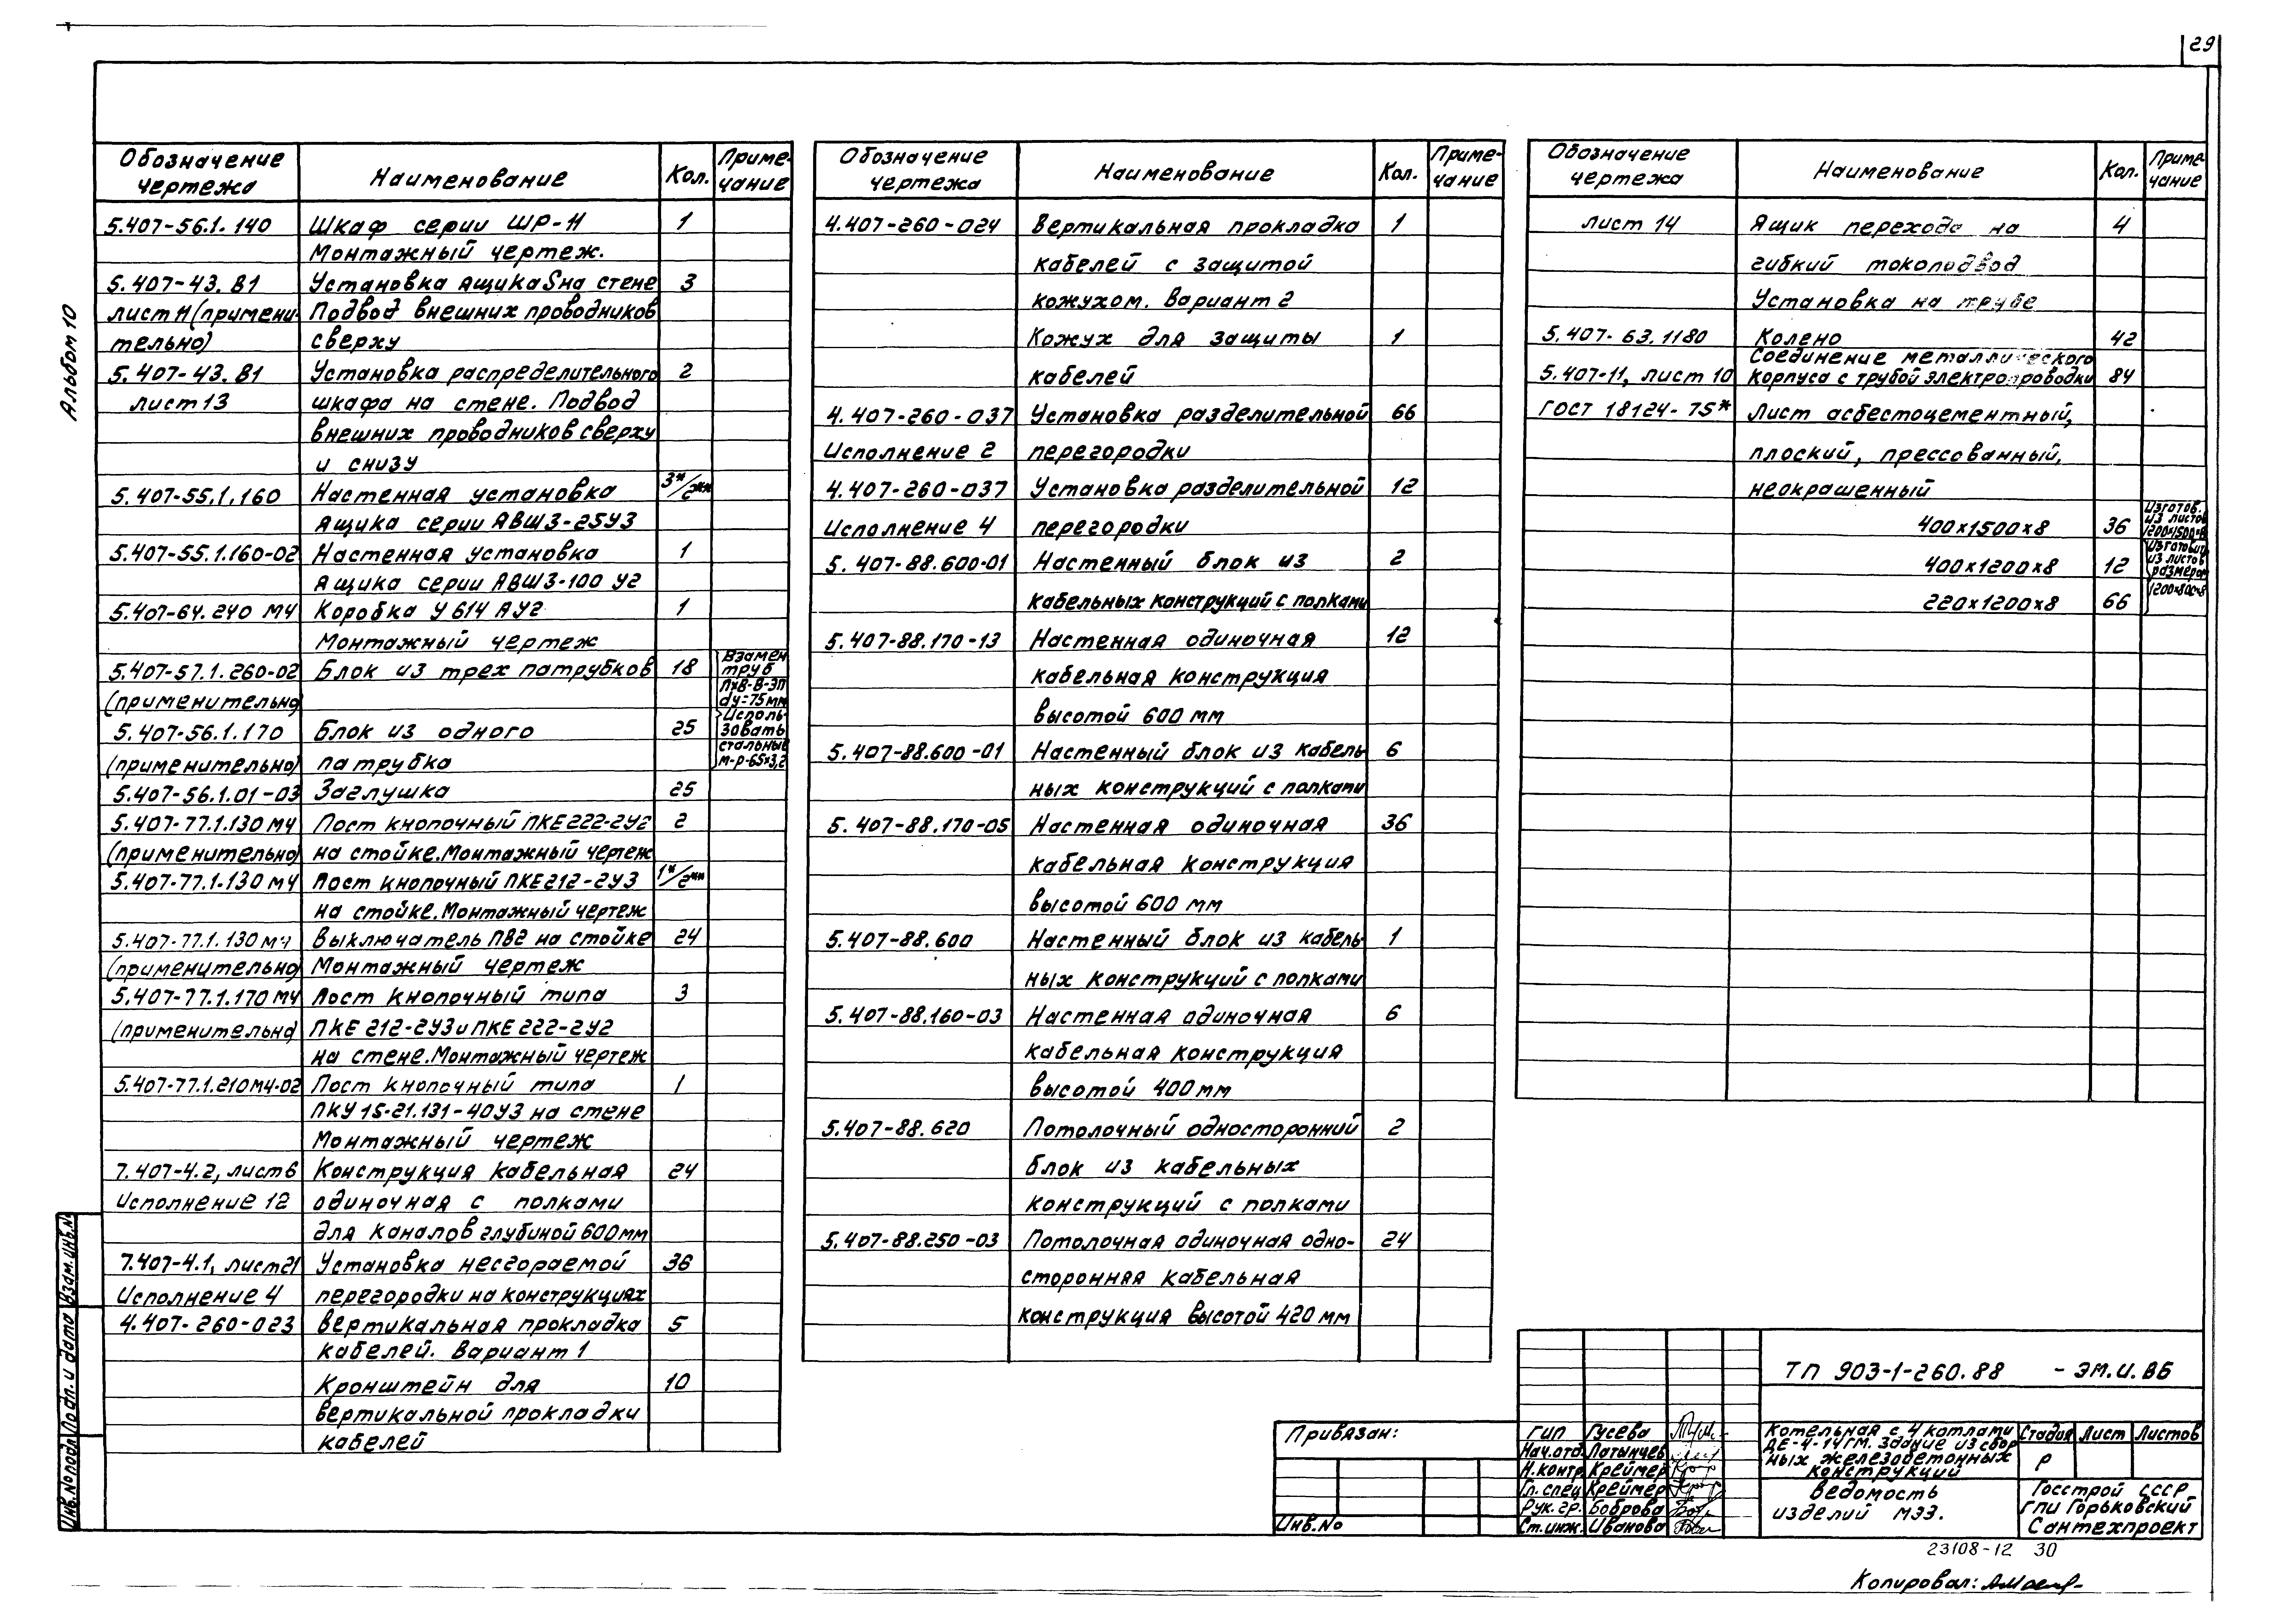 29
Альбом 10
Обозначение чертежа | Наименование | Кол. | Примечание
5.407-56.1.140 | Шкаф серии ШР-11 | 1
Монтажный чертеж.
5.407-43.В1 | Установка ящика S на стене | 3
лист 11 (примени- | Подвод внешних проводников
тельно) | сверху
5.407-43.В1 | Установка распределительного | 2
лист 13 | шкафа на стене. Подвод
внешних проводников сверху
и снизу
5.407-55.1.160 | Настенная установка | 3*/2**
Ящика серии АВШ3-25У3
5.407-55.1.160-02 | Настенная установка | 1
Ящика серии АВШ3-100 У2
5.407-64.240 МЧ | Коробка У 614 АУ2 | 1
Монтажный чертеж
5.407-57.1.260-02 | Блок из трех патрубков | 18 | Взамен труб
(применительно) | ПХВ-В-ЭП dу=75мм
5.407-56.1.170 | Блок из одного | 25 | Исполь-зовать
(применительно) | патрубка | стальные м-р-65×3,2
5.407-56.1.01-03 | Заглушка | 25
5.407-77.1.130 МЧ | Пост кнопочный ПКЕ 222-2У2 | 2
(применительно) | на стойке. Монтажный чертеж
5.407-77.1-130 МЧ | Пост кнопочный ПКЕ 212-2У3 | 1*/2**
на стойке. Монтажный чертеж
5.407-77.1.130 МЧ | Выключатель ПВ2 на стойке | 24
(применительно) | Монтажный чертеж
5.407-77.1.170 МЧ | Пост кнопочный типа | 3
(применительно | ПКЕ 212-2У3 и ПКЕ 222-2У2
на стене. Монтажный чертеж
5.407-77.1.210МЧ-02 | Пост кнопочный типа | 1
ПКУ 15-21.131-40У3 на стене
Монтажный чертеж
7.407-4.2, лист 6 | Конструкция кабельная | 24
Исполнение 12 | одиночная с полками
для каналов глубиной 600мм
7.407-4.1, лист 21 | Установка несгораемой | 36
Исполнение 4 | перегородки на конструкциях
4.407-260-023 | Вертикальная прокладка | 5
кабелей. Вариант 1
Кронштейн для | 10
вертикальной прокладки
кабелей
Обозначение чертежа | Наименование | Кол. | Примечание
4.407-260-024 | Вертикальная прокладка | 1
кабелей с защитой
кожухом. Вариант 2
Кожух для защиты | 1
кабелей
4.407-260-037 | Установка разделительной | 66
Исполнение 2 | перегородки
4.407-260-037 | Установка разделительной | 12
Исполнение 4 | перегородки
5.407-88.600-01 | Настенный блок из | 2
кабельных конструкций с полками
5.407-88.170-13 | Настенная одиночная | 12
кабельная конструкция
высотой 600 мм
5.407-88.600-01 | Настенный блок из кабель- | 6
ных конструкций с полками
5.407-88.170-05 | Настенная одиночная | 36
кабельная конструкция
высотой 600 мм
5.407-88.600 | Настенный блок из кабель- | 1
ных конструкций с полками
5.407-88.160-03 | Настенная одиночная | 6
кабельная конструкция
высотой 400 мм
5.407-88.620 | Потолочный односторонний | 2
блок из кабельных
конструкций с полками
5.407-88.250-03 | Потолочная одиночная одно- | 24
сторонняя кабельная
конструкция высотой 420 мм
Обозначение чертежа | Наименование | Кол. | Примечание
лист 14 | Ящик перехода на | 4
гибкий токоподвод
Установка на трубе
5.407-63.1180 | Колено | 42
Соединение металлического
5.407-11, лист 10 | корпуса с трубой электропроводки | 84
ГОСТ 18124-75* | Лист асбестоцементный,
плоский, прессованный,
неокрашенный
400×1500×8 | 36 | Изготов. из листов 1200×1500×8
400×1200×8 | 12 | Изготовить из листов размером
220×1200×8 | 66 | 1200×800×8
Инв.№ подл. Подп. и дата Взам.инв.№
Привязан:
Инв.№
ТП 903-1-260.88 - ЭМ.И.ВБ
ГИП Гусева
Нач.отд. Латынцев
Н.контр. Креймер
Гл.спец. Креймер
Рук.гр. Боброва
Ст.инж. Иванова
Котельная с 4 котлами
ДЕ-4-14ГМ. Здание из сбор
ных железобетонных
конструкций
Стадия Лист Листов
Р
Ведомость
изделий МЭЗ.
Госстрой СССР
ГПИ Горьковский
Сантехпроект
23108-12 30
Копировал: